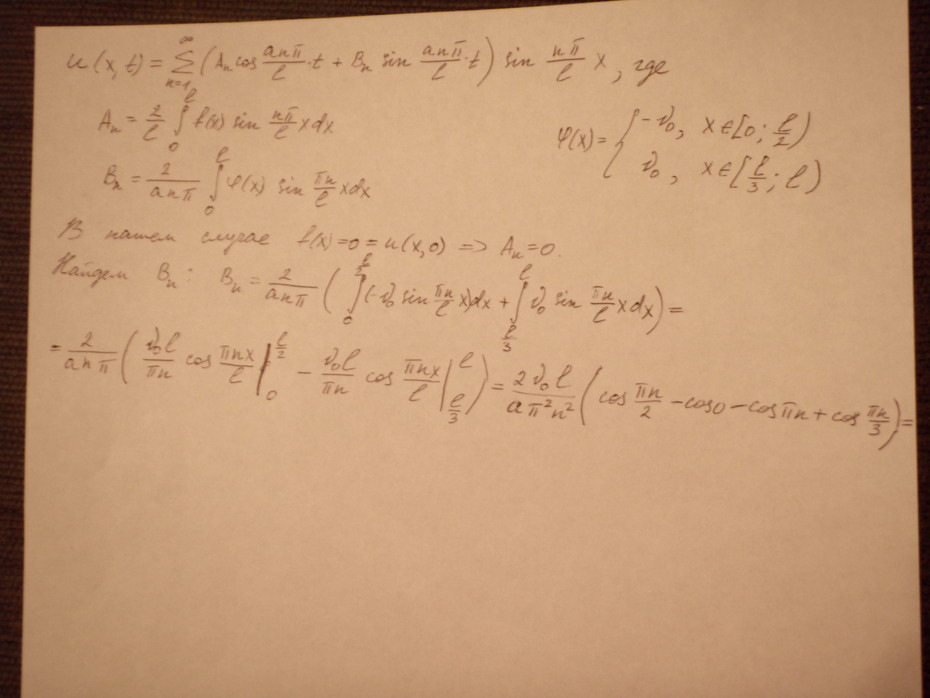 u(x,t) = ∑_{n=1}^{∞} (Aₙ cos (anπ/l)·t + Bₙ sin (anπ/l)·t) sin (nπ/l) x, где
Aₙ = 2/l ∫₀^l f(x) sin (nπ/l) x dx
φ(x) = { -v₀, x∈[0; l/2)
v₀, x∈[l/3; l)
Bₙ = 2/(anπ) ∫₀^l φ(x) sin (πn/l) x dx
В нашем случае f(x)=0=u(x,0) => Aₙ=0.
Найдем Bₙ: Bₙ = 2/(anπ) ( ∫₀^{l/2} (-v₀ sin (πn/l) x)dx + ∫_{l/3}^l v₀ sin (πn/l) x dx ) =
= 2/(anπ) ( (v₀l/πn) cos (πnx/l) |₀^{l/2} - (v₀l/πn) cos (πnx/l) |_{l/3}^l ) = (2v₀l)/(aπ²n²) ( cos (πn/2) - cos0 - cosπn + cos (πn/3) ) =